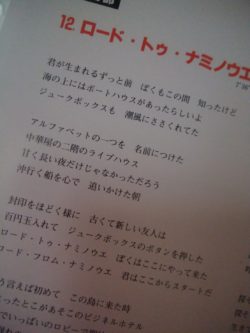 12. ロード・トゥ・ナミノウエ
君が生まれるずっと前 ぼくもこの間 知ったけど
海の上にはボートハウスがあったらしいよ
ジュークボックスも 潮風にさらされてた
アルファベットの一つを 名前につけた
中華屋の二階のライブハウス
甘く長い夜だけじゃなかっただろう
沖行く船を心で 追いかけた朝
封印をほどく様に 古くて新しい友人は
百円玉入れて ジュークボックスのボタンを押した
ロード・トゥ・ナミノウエ ぼくはここにやって来た
ロード・フロム・ナミノウエ 君はここからスタートだ
う言えば初めて この島に来た時
ったところがあそこのビジネスホテル